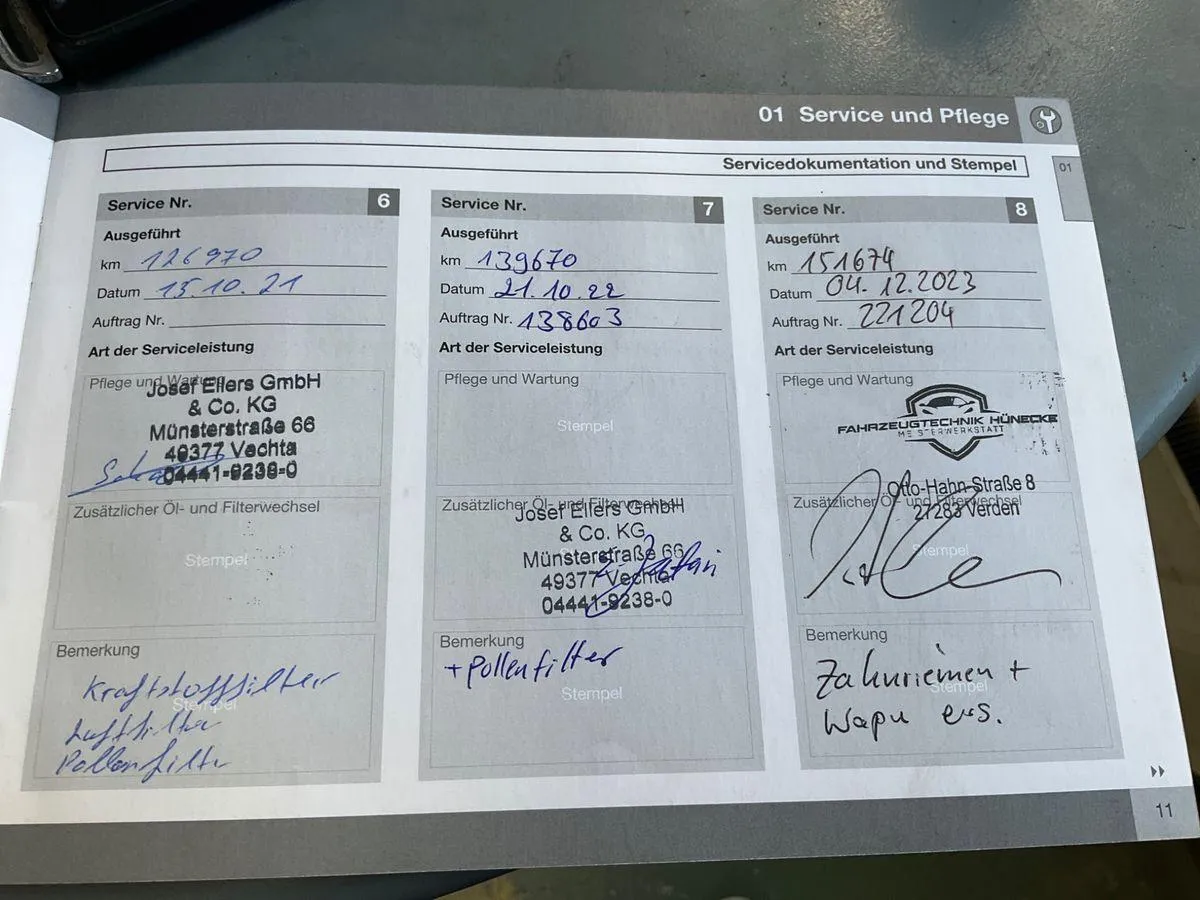 01 Service und Pflege
Servicedokumentation und Stempel
01
Service Nr. 6
Ausgeführt
km 126970
Datum 15.10.21
Auftrag Nr.
Art der Serviceleistung
Pflege und Wartung
Josef Eilers GmbH
& Co. KG
Münsterstraße 66
49377 Vechta
04441-9238-0
Zusätzlicher Öl- und Filterwechsel
Stempel
Bemerkung
Stempel
Kraftstofffilter
Luftfilter
Pollenfilter
Service Nr. 7
Ausgeführt
km 139670
Datum 21.10.22
Auftrag Nr. 138603
Art der Serviceleistung
Pflege und Wartung
Stempel
Zusätzlicher Öl- und Filterwechsel
Josef Eilers GmbH
& Co. KG
Münsterstraße 66
49377 Vechta
04441-9238-0
Bemerkung
+ Pollenfilter
Stempel
Service Nr. 8
Ausgeführt
km 151674
Datum 04.12.2023
Auftrag Nr. 221204
Art der Serviceleistung
Pflege und Wartung
FAHRZEUGTECHNIK HÜNECKE
MEISTERWERKSTATT
Otto-Hahn-Straße 8
27283 Verden
Zusätzlicher Öl- und Filterwechsel
Stempel
Bemerkung
Zahnriemen +
Stempel
Wapu ers.
11